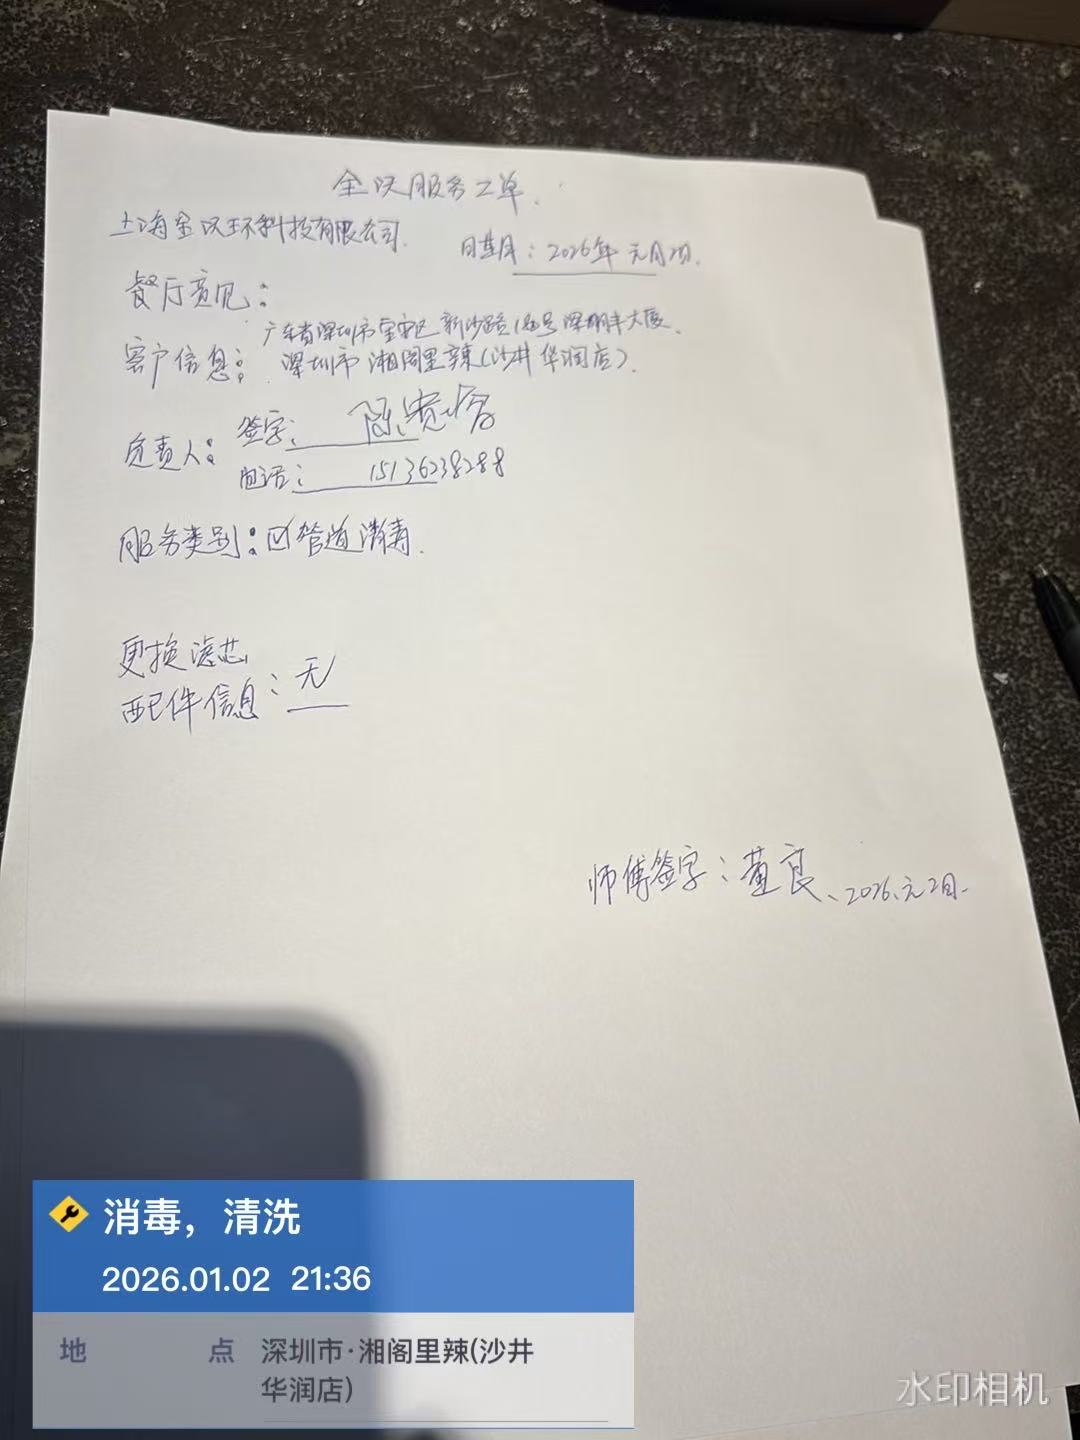 全汉服务工单.
上海全汉环科技有限公司.
日期：2026年元月2日.
餐厅意见：
广东省深圳市宝安区新沙路 号深 丰大厦.
客户信息：深圳市湘阁里辣(沙井华润店).
负责人：签字：陈
电话：15136238288
服务类别：☑管道消毒.
更换滤芯
配件信息：无
师傅签字：董良、2026.元2日.
消毒，清洗
2026.01.02 21:36
地 点 深圳市·湘阁里辣(沙井
华润店)
水印相机